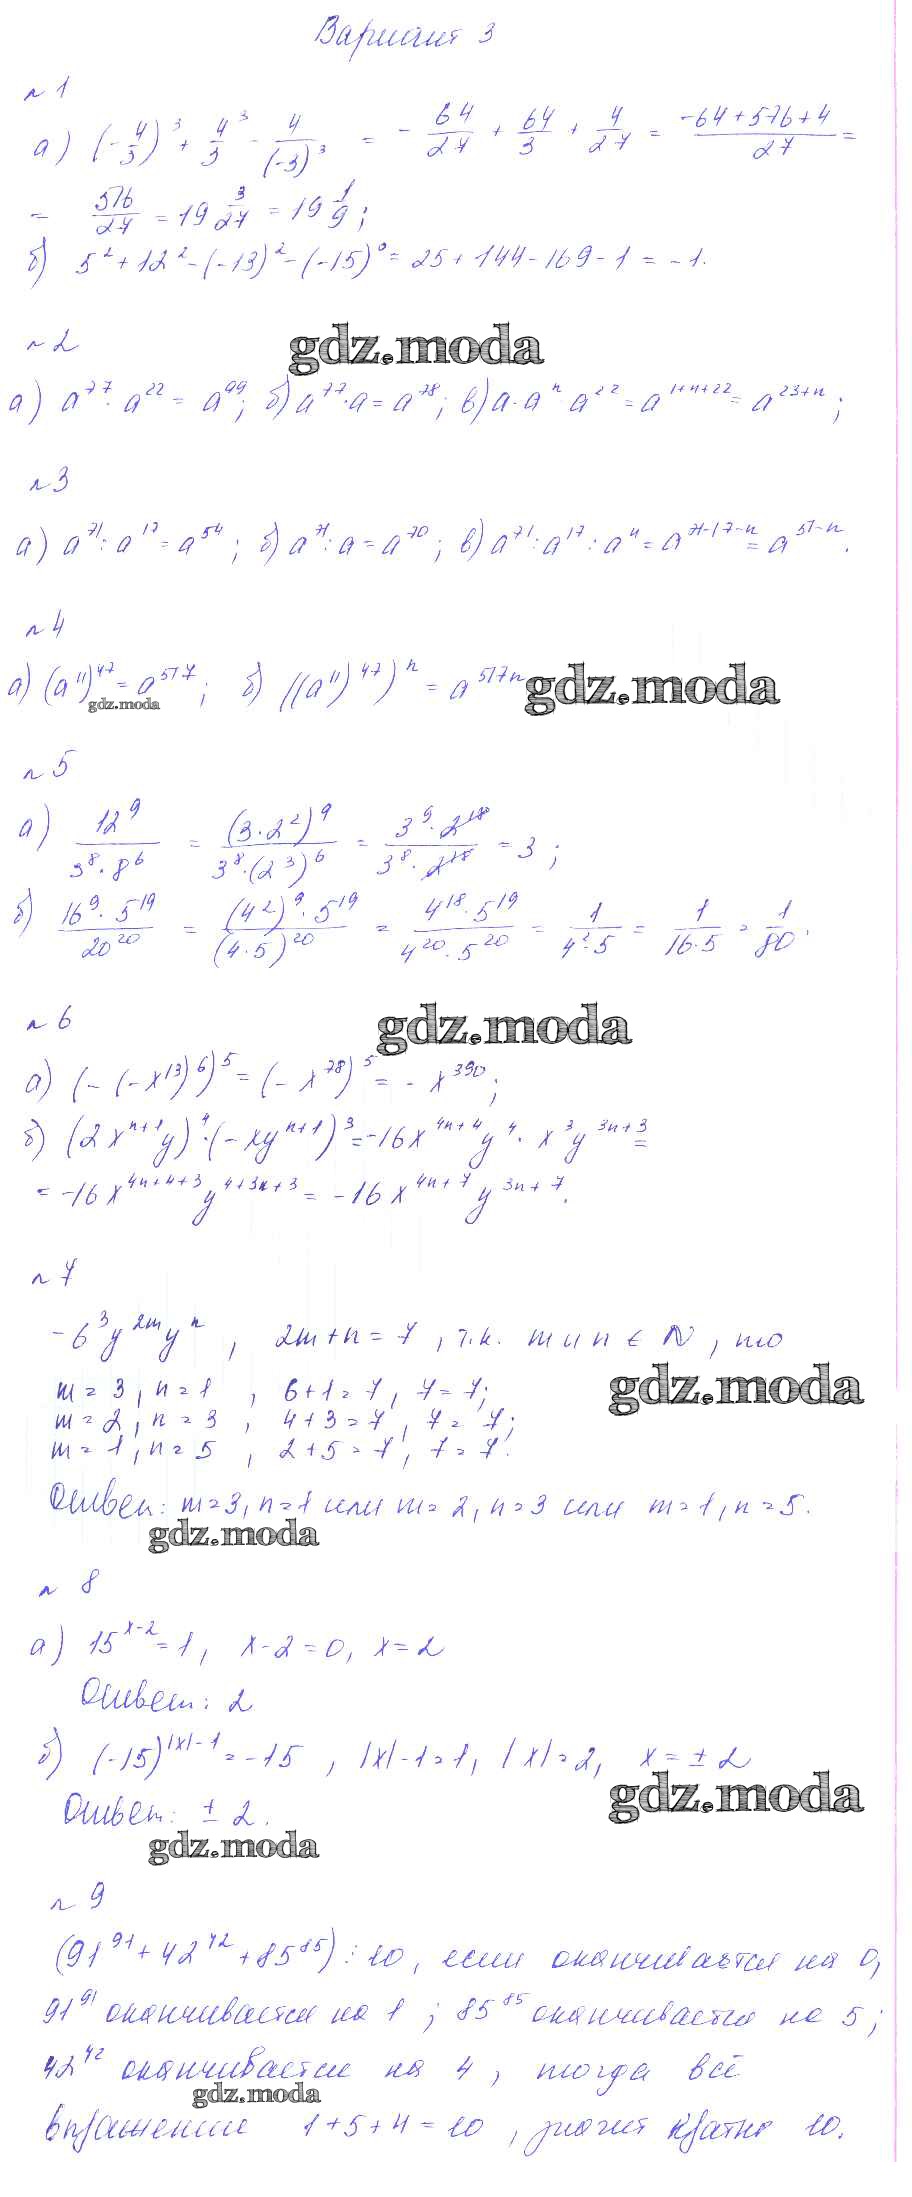 Вариант 3
№1
а) (-4/3)³ + 4³/3 - 4/(-3)³ = - 64/27 + 64/3 + 4/27 = -64+576+4/27 =
= 516/27 = 19 3/27 = 19 1/9;
б) 5² + 12² - (-13)² - (-15)⁰ = 25 + 144 - 169 - 1 = -1.
№2
gdz.moda
а) a⁷⁷· a²² = a⁹⁹; б) a⁷⁷·a = a⁷⁸; в) a·aⁿ a²² = a¹⁺ⁿ⁺²² = a²³⁺ⁿ;
№3
а) a⁷¹: a¹⁷ = a⁵⁴; б) a⁷¹: a = a⁷⁰; в) a⁷¹: a¹⁷: aⁿ = a⁷¹⁻¹⁷⁻ⁿ = a⁵¹⁻ⁿ.
№4
а) (a¹¹)⁴⁷ = a⁵¹⁷; б) ((a¹¹)⁴⁷)ⁿ = a⁵¹⁷ⁿ gdz.moda
gdz.moda
№5
а) 12⁹/3⁸·8⁶ = (3·2²)⁹/3⁸·(2³)⁶ = 3⁹·2¹⁸/3⁸·2¹⁸ = 3;
б) 16⁹·5¹⁹/20²⁰ = (4²)⁹·5¹⁹/(4·5)²⁰ = 4¹⁸·5¹⁹/4²⁰·5²⁰ = 1/4²·5 = 1/16·5 = 1/80.
№6
gdz.moda
а) (-(-x¹³)⁶)⁵ = (-x⁷⁸)⁵ = -x³⁹⁰;
б) (2xⁿ⁺¹y)⁴·(-xyⁿ⁺¹)³ = -16x⁴ⁿ⁺⁴y⁴· x³y³ⁿ⁺³ =
= -16x⁴ⁿ⁺⁴⁺³y⁴⁺³ⁿ⁺³ = -16x⁴ⁿ⁺⁷y³ⁿ⁺⁷.
№7
-6³y²ᵐyⁿ, 2m+n = 7, т.к. m и n ∈ N, то
gdz.moda
m = 3, n = 1, 6+1 = 7, 7 = 7;
m = 2, n = 3, 4+3 = 7, 7 = 7;
m = 1, n = 5, 2+5 = 7, 7 = 7.
Ответ: m=3, n=1 или m=2, n=3 или m=1, n=5.
gdz.moda
№8
а) 15ˣ⁻² = 1, x-2 = 0, x = 2
Ответ: 2
б) (-15)^|x|-1 = -15, |x|-1 = 1, |x| = 2, x = ± 2
gdz.moda
Ответ: ± 2.
gdz.moda
№9
(91⁹¹ + 42⁴² + 85⁸⁵) ⋮ 10, если оканчивается на 0,
91⁹¹ оканчивается на 1; 85⁸⁵ оканчивается на 5;
42⁴² оканчивается на 4, тогда всё
gdz.moda
выражение 1+5+4 = 10, значит кратно 10.